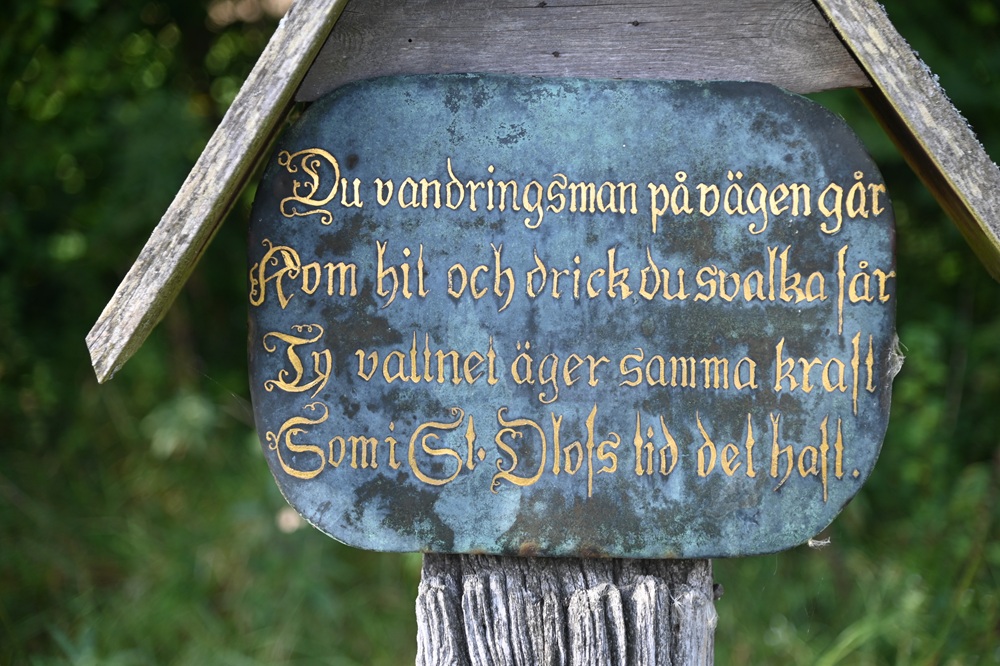 Du vandringsman på vägen går
Kom hit och drick du svalka får
Ty vattnet äger samma kraft
Som i St. Olofs tid det haft.